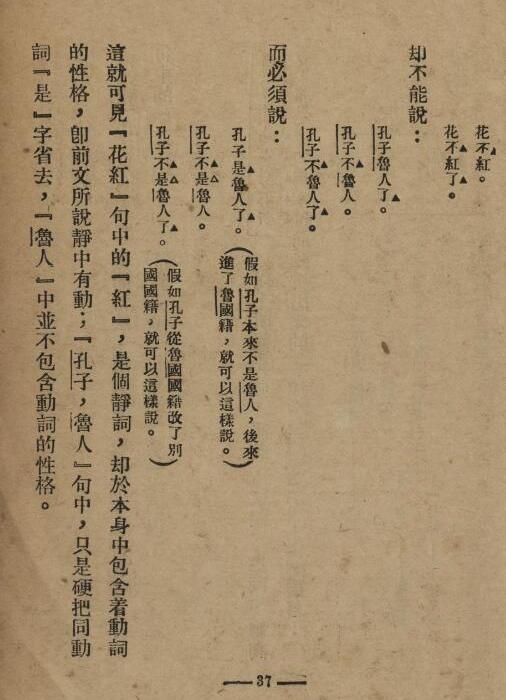 花不紅。
花不紅了。
却不能說：
孔子魯人了。
孔子不魯人。
孔子不魯人了。
而必須說：
孔子是魯人了。
（假如孔子本來不是魯人，後來
進了魯國籍，就可以這樣說。）
孔子不是魯人。
孔子不是魯人了。
（假如孔子從魯國國籍改了別
國國籍，就可以這樣說。）
這就可見『花紅』句中的『紅』，是個靜詞，却於本身中包含着動詞
的性格，卽前文所說靜中有動；『孔子，魯人』句中，只是硬把同動
詞『是』字省去，『魯人』中並不包含動詞的性格。
37